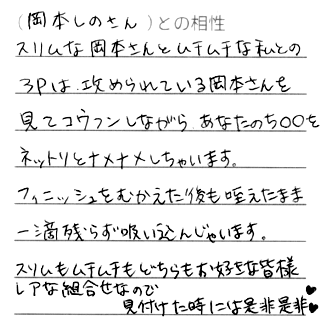 (岡本しのさん)との相性
スリムな岡本さんとムチムチな私との
3Pは、攻められている岡本さんを
見てコウフンしながら あなたのち〇〇を
ネットリとナメナメしちゃいます。
フィニッシュをむかえた後も咥えたまま
一滴残らず吸い込んじゃいます。
スリムもムチムチもどちらもお好きな皆様
レアな組合せなので♥
見付けた時には是非是非♥